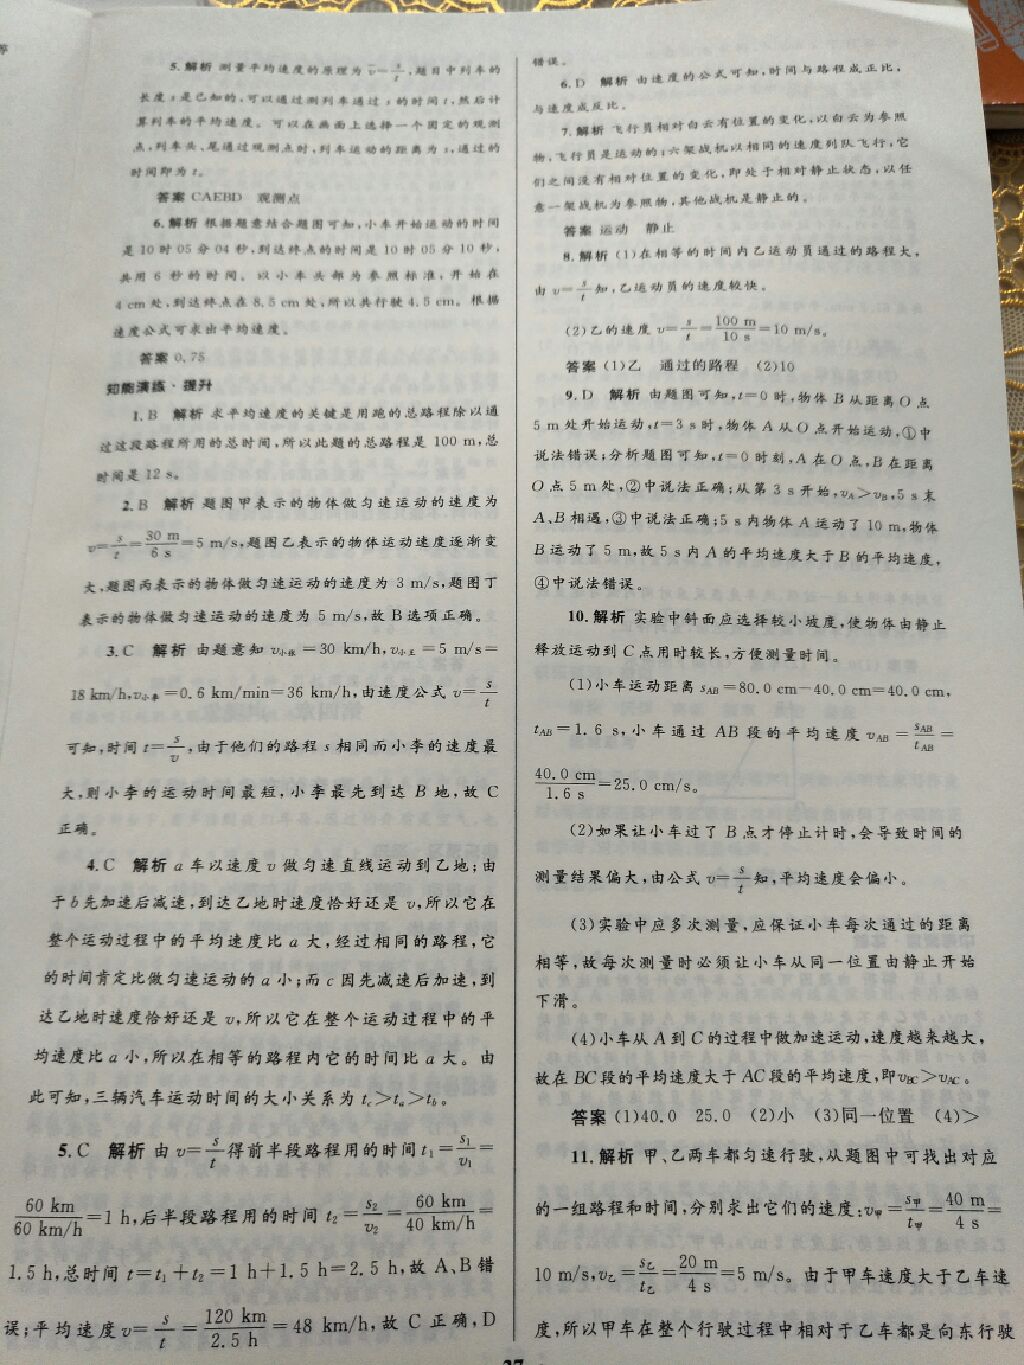 等
5.解析 测量平均速度的原理为 v=s/t,题目中列车的
长度 s 是已知的,可以通过测列车通过 s 的时间 t,然后计
算列车的平均速度。可以在画面上选择一个固定的观测
点,列车头、尾通过观测点时,列车运动的距离为 s,通过的
时间即为 t。
答案 CAEBD 观测点
6.解析 根据题意结合题图可知,小车开始运动的时间
是 10 时 05 分 04 秒,到达终点的时间是 10 时 05 分 10 秒,
共用 6 秒的时间。以小车头部为参照标准,开始在
4 cm 处,到达终点在 8.5 cm 处,所以共行驶 4.5 cm。根据
速度公式可求出平均速度。
答案 0.75
知能演练·提升
1.B 解析 求平均速度的关键是用跑的总路程除以通
过这段路程所用的总时间,所以此题的总路程是 100 m,总
时间是 12 s。
2.B 解析 题图甲表示的物体做匀速运动的速度为
v=s/t=30 m/6 s=5 m/s,题图乙表示的物体运动速度逐渐变
大,题图丙表示的物体做匀速运动的速度为 3 m/s,题图丁
表示的物体做匀速运动的速度为 5 m/s,故 B 选项正确。
3.C 解析 由题意知 v小张=30 km/h,v小王=5 m/s=
18 km/h,v小李=0.6 km/min=36 km/h,由速度公式 v=s/t
可知,时间 t=s/v,由于他们的路程 s 相同而小李的速度最
大,则小李的运动时间最短,小李最先到达 B 地,故 C
正确。
4.C 解析 a 车以速度 v 做匀速直线运动到乙地;由
于 b 先加速后减速,到达乙地时速度恰好还是 v,所以它在
整个运动过程中的平均速度比 a 大,经过相同的路程,它
的时间肯定比做匀速运动的 a 小;而 c 因先减速后加速,到
达乙地时速度恰好还是 v,所以它在整个运动过程中的平
均速度比 a 小,所以在相等的路程内它的时间比 a 大。由
此可知,三辆汽车运动时间的大小关系为 tc>ta>tb。
5.C 解析 由 v=s/t得前半段路程用的时间 t1=s1/v1=
60 km/60 km/h=1 h,后半段路程用的时间 t2=s2/v2=60 km/40 km/h=
1.5 h,总时间 t=t1+t2=1 h+1.5 h=2.5 h,故 A、B 错
误;平均速度 v=s/t=120 km/2.5 h=48 km/h,故 C 正确,D
错误。
6.D 解析 由速度的公式可知,时间与路程成正比,
与速度成反比。
7.解析 飞行员相对白云有位置的变化,以白云为参照
物,飞行员是运动的;六架战机以相同的速度列队飞行,它
们之间没有相对位置的变化,即处于相对静止状态,以任
意一架战机为参照物,其他战机是静止的。
答案 运动 静止
8.解析 (1)在相等的时间内乙运动员通过的路程大,
由 v=s/t知,乙运动员的速度较快。
(2)乙的速度 v=s/t=100 m/10 s=10 m/s。
答案 (1)乙 通过的路程 (2)10
9.D 解析 由题图可知,t=0 时,物体 B 从距离 O 点
5 m 处开始运动,t=3 s 时,物体 A 从 O 点开始运动,①中
说法错误;分析题图可知,t=0 时刻,A 在 O 点,B 在距离
O 点 5 m 处,②中说法正确;从第 3 s 开始,vA>vB,5 s 末
A、B 相遇,③中说法正确;5 s 内物体 A 运动了 10 m,物体
B 运动了 5 m,故 5 s 内 A 的平均速度大于 B 的平均速度,
④中说法错误。
10.解析 实验中斜面应选择较小坡度,使物体由静止
释放运动到 C 点用时较长,方便测量时间。
(1)小车运动距离 sAB=80.0 cm-40.0 cm=40.0 cm,
tAB=1.6 s,小车通过 AB 段的平均速度 vAB=sAB/tAB=
40.0 cm/1.6 s=25.0 cm/s。
(2)如果让小车过了 B 点才停止计时,会导致时间的
测量结果偏大,由公式 v=s/t知,平均速度会偏小。
(3)实验中应多次测量,应保证小车每次通过的距离
相等,故每次测量时必须让小车从同一位置由静止开始
下滑。
(4)小车从 A 到 C 的过程中做加速运动,速度越来越大,
故在 BC 段的平均速度大于 AC 段的平均速度,即 vBC>vAC。
答案 (1)40.0 25.0 (2)小 (3)同一位置 (4)>
11.解析 甲、乙两车都匀速行驶,从题图中可找出对应
的一组路程和时间,分别求出它们的速度:v甲=s甲/t甲=40 m/4 s=
10 m/s,v乙=s乙/t乙=20 m/4 s=5 m/s。由于甲车速度大于乙车速
度,所以甲车在整个行驶过程中相对于乙车都是向东行驶